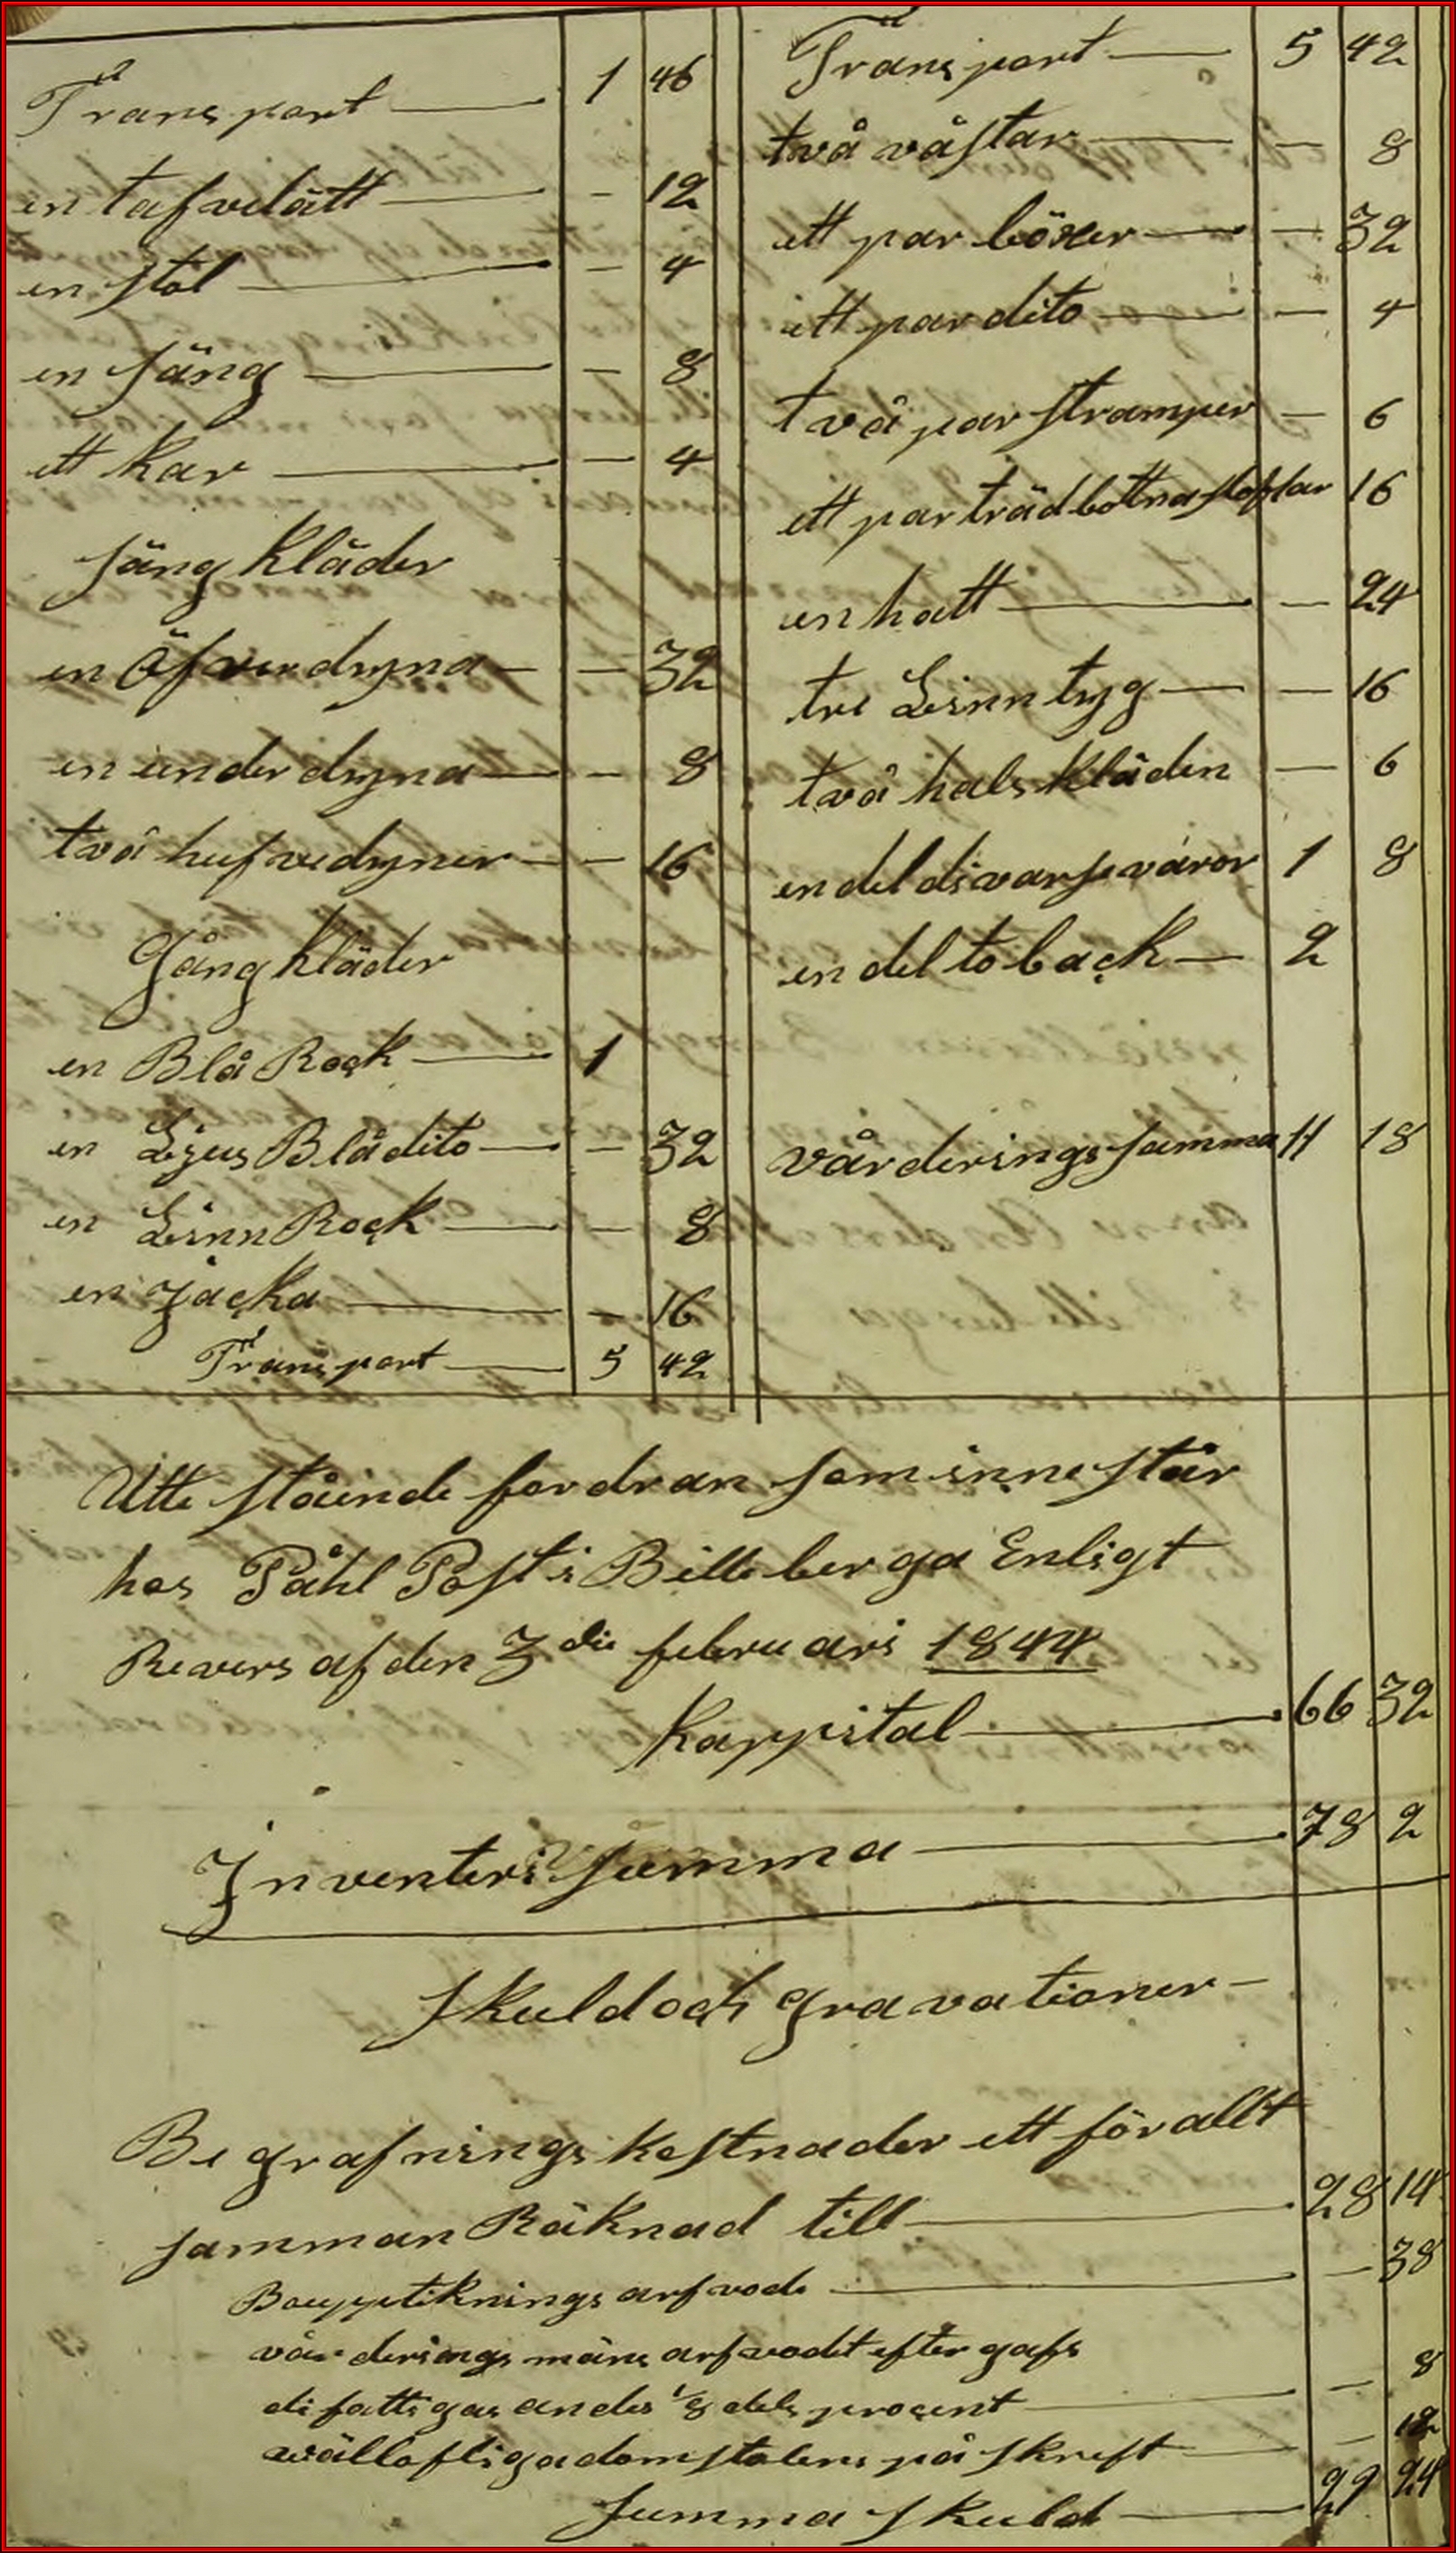 Transport — 1 46
en tafvelätt — - 12
en stol — - 4
en säng — - 8
ett Kar — - 4
säng Kläder
en Öfverdyna — - 32
en underdyna — - 8
två hufvedyner — - 16
Gång kläder
en Blå Rock — 1
en Ljus Blå dito — - 32
en Linn Rock — - 8
en Jacka — - 16
Transport — 5 42
Transport — 5 42
två västar — - 8
ett par böxer — - 32
ett par dito — - 4
två par strømper - 6
ett par trädbottnastøflar 16
en hatt — - 24
tre Linn tyg — - 16
två hals Kläden - 6
en del divarse väror 1 8
en del toback — 2
värderings summa 11 18
Utte stäende fordran som inne står
hos Påhl Post i Billeberga Enligt
Revers af den 3die februari 1844
Kappital — 66 32
Inventeri Summa — 78 2
Skuld och gravationer —
Begrafnings Kostnader ett för allt
samman Räknad till — 28 14
Bouppteknings arfvode — - 38
värderings mäns arfvodet efter gafs
di fattigas andel 1/8 dels procent — - 8
välloflliga domstolens på skrift — - 12
Summa Skuld — 29 24